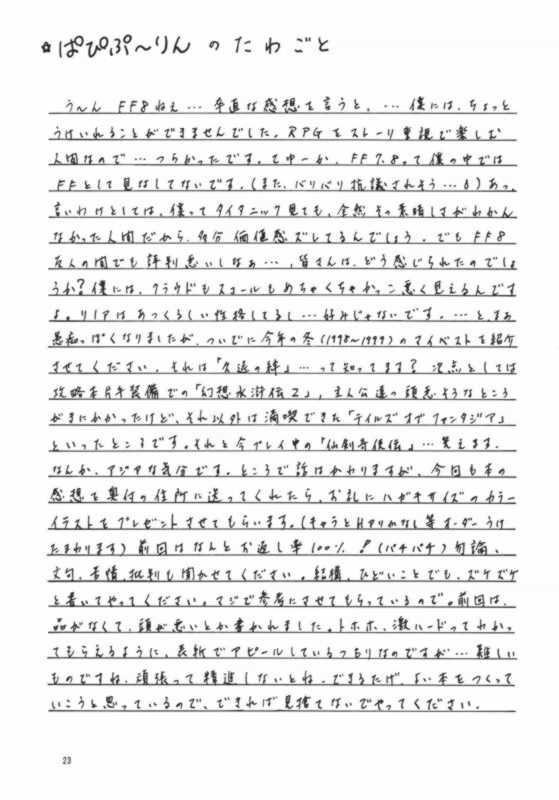 ☆ぱぴぷ〜りんのたわごと
う〜ん FF8ねぇ… 率直な感想を言うと、… 僕には、ちょっと
うけいれることができませんでした。RPGをストーリー重視で楽しむ
人間なので… つらかったです。てゆーか、FF7.8って僕の中では
FFとして見なしてないです。(また、バリバリ抗議されそう…6)あっ、
言いわけとしては、僕ってタイタニック見ても、全然その素晴しさがわかん
なかった人間だから、多分価値感ズレてるんでしょう。でもFF8
友人の間でも評判悪いしなぁ…、皆さんは、どう感じられたのでしょ
うか?僕には、クラウドもスコールもめちゃくちゃかっこ悪く見えるんです
よ。リノアはあつくるしい性格してるし…好みじゃないです。…と、まぁ
愚痴っぽくなりましたが、ついでに今年の冬(1998〜1999)のマイベストを紹介
させてください。それは「久遠の絆」…って知ってます?次点としては
攻略本片手装備での「幻想水滸伝2」、主人公達の頭悪そうなところ
がきにかかったけど、それ以外は満喫できた「テイルズオブファンタジア」
といったところです。それと今プレイ中の「仙剣奇侠伝」…笑えます。
なんか、アジアな気分です。ところで話はかわりますが、今回も本の
感想を奥付の住所に送ってくれたら、お礼にハガキサイズのカラー
イラストをプレゼントさせてもらいます。(キャラとHアリかなし等オーダーうけ
たまわります)前回はなんとお返し率100%!(パチパチ)勿論、
文句、苦情、批判も聞かせてください。結構、ひどいことでも、ズケズケ
と書いてやってください。マジで参考にさせてもらっているので。前回は、
品がなくて、頭が悪いとか書かれました。トホホ、激ハードってわかっ
てもらえるように、表紙でアピールしているつもりなのですが…難しい
ものですね。頑張って精進しないとね。できるだけ、よい本をつくって
いこうと思っているので、できれば見捨てないでやってください。
23